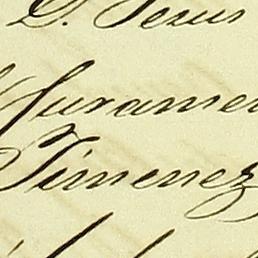 D. Jesus
Juramen
Jimenez